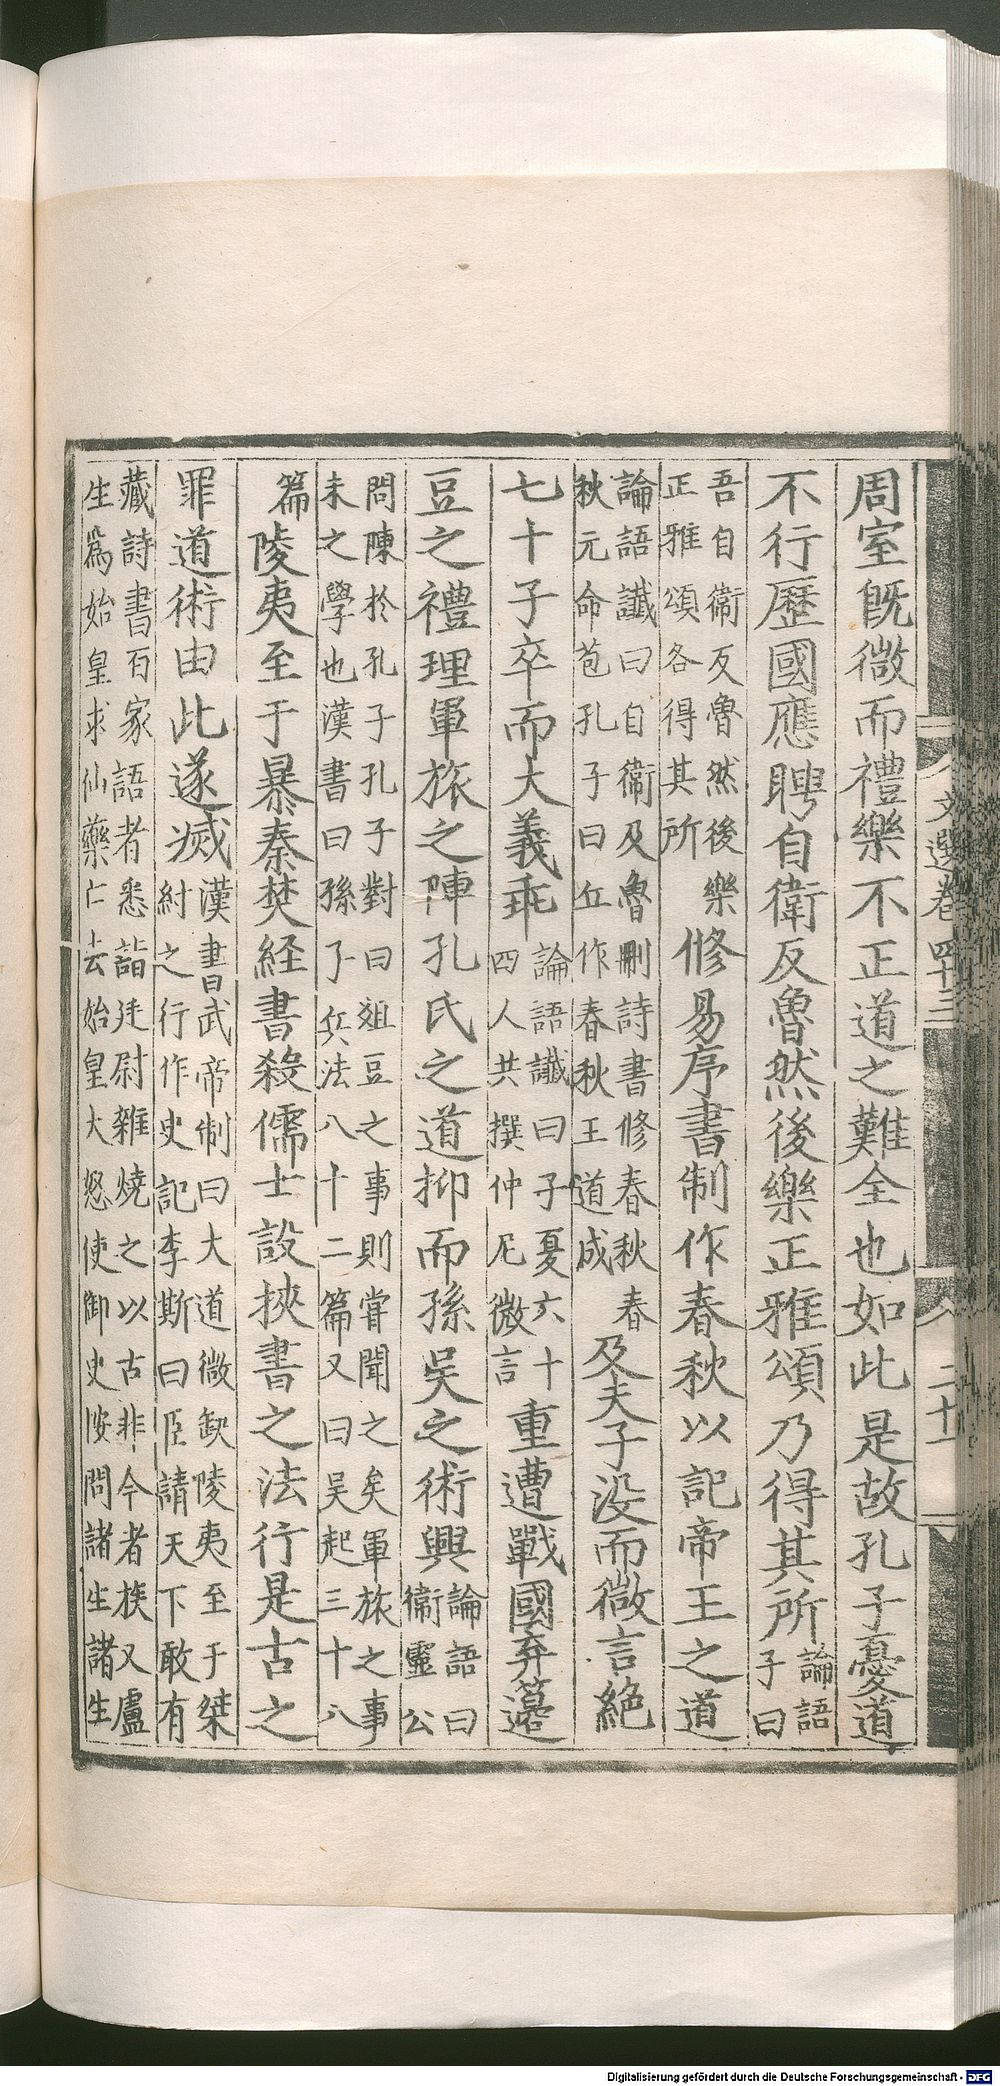 文選卷四十三 二十一
周室旣微而禮樂不正道之難全也如此是故孔子憂道
不行歷國應聘自衛反魯然後樂正雅頌乃得其所論語子曰
吾自衛反魯然後樂正雅頌各得其所修易序書制作春秋以記帝王之道
論語讖曰自衛及魯刪詩書修春秋春秋元命苞孔子曰丘作春秋王道成及夫子没而微言絕
七十子卒而大義乖論語讖曰子夏六十四人共撰仲尼微言重遭戰國弃籩
豆之禮理軍旅之陣孔氏之道抑而孫吳之術興論語曰衛靈公
問陳於孔子孔子對曰爼豆之事則甞聞之矣軍旅之事未之學也漢書曰孫子兵法八十二篇又曰吳起三十八
篇陵夷至于暴秦焚経書殺儒士設挾書之法行是古之
罪道術由此遂滅漢書武帝制曰大道微缺陵夷至于桀紂之行作史記李斯曰臣請天下敢有
藏詩書百家語者悉詣廷尉雜燒之以古非今者族又盧生爲始皇求仙藥亡去始皇大怒使御史按問諸生諸生
Digitalisierung gefördert durch die Deutsche Forschungsgemeinschaft - DFG